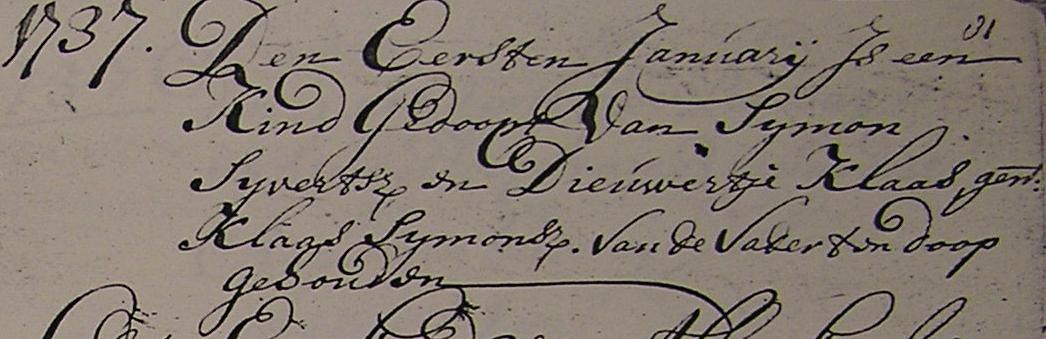 31
1737. Den Eersten Januarij Is een
Kind Gedoopt Van Symon
Syvertsz, en Dieuwertje Klaas, gen:
Klaas Symonsz. Van de Vader ten doop
gehouden